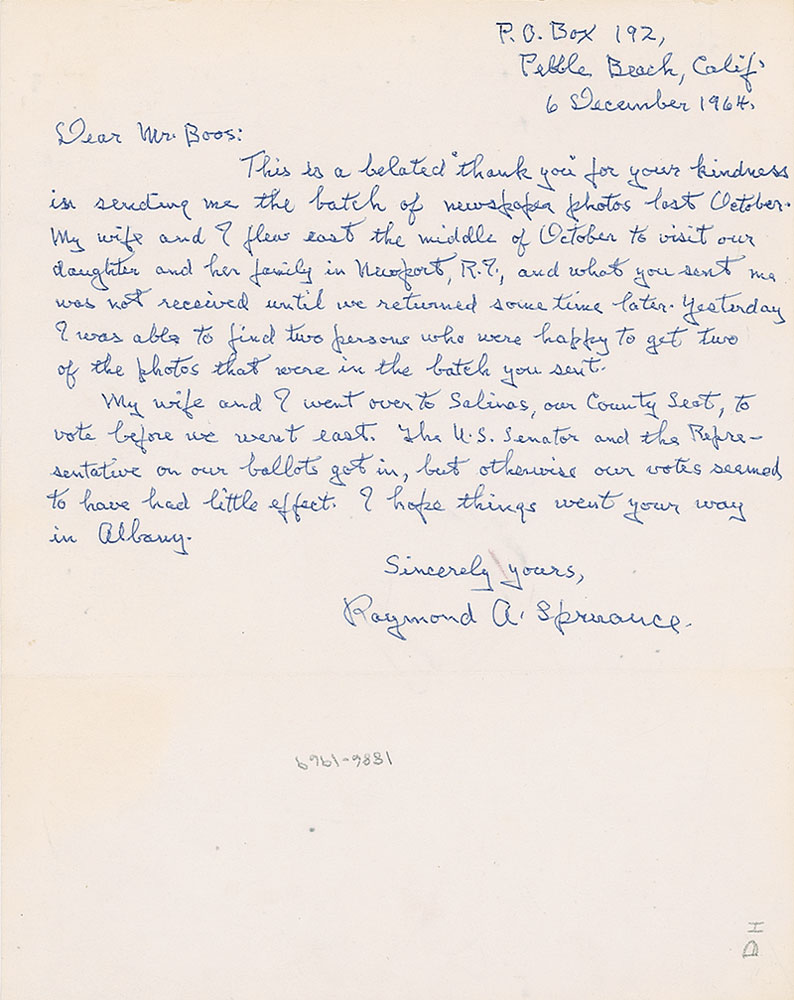 P.O. Box 192,
Pebble Beach, Calif.
6 December 1964.
Dear Mr. Boos:
This is a belated "thank you" for your kindness
in sending me the batch of newspaper photos last October.
My wife and I flew east the middle of October to visit our
daughter and her family in Newport, R.I., and what you sent me
was not received until we returned some time later. Yesterday
I was able to find two persons who were happy to get two
of the photos that were in the batch you sent.
My wife and I went over to Salinas, our County Seat, to
vote before we went east. The U.S. Senator and the Repre-
sentative on our ballots got in, but otherwise our votes seemed
to have had little effect. I hope things went your way
in Albany.
Sincerely yours,
Raymond A. Spruance.
1886-1969
DH